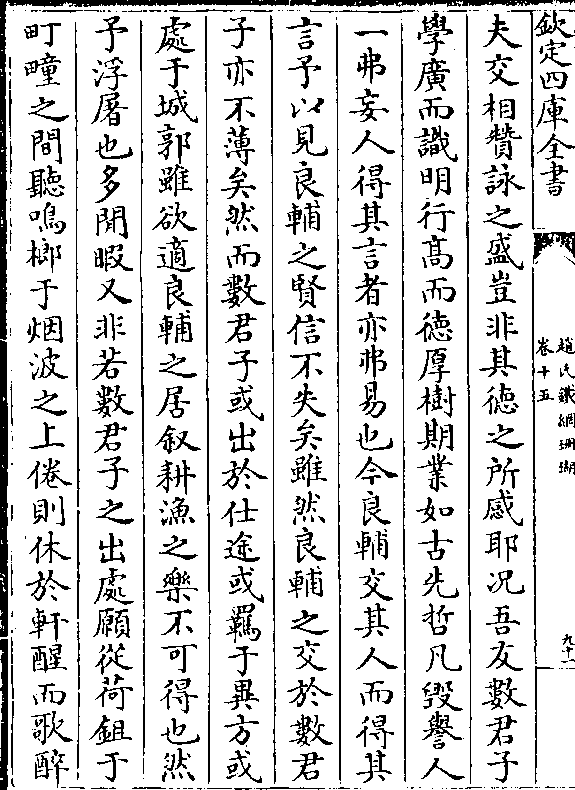 欽定四庫全書
趙氏鐵網珊瑚
卷十五
九十一
夫交相贊詠之盛豈非其徳之所感耶况吾友數君子
學廣而識明行髙而徳厚樹期業如古先哲凡毁譽人
一弗妄人得其言者亦弗易也今良輔交其人而得其
言予以見良輔之賢信不失矣雖然良輔之交於數君
子亦不薄矣然而數君子或出於仕途或羈于異方或
處于城郭雖欲適良輔之居叙耕漁之樂不可得也然
予浮屠也多閒暇又非若數君子之出處願從荷鉏于
町疃之間聽鳴榔于烟波之上倦則休於軒醒而歌醉